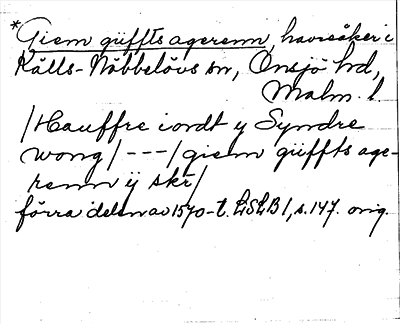 *Giem güffts agerenn, havresåker i
Källs-Nöbbelövs sn, Onsjö hd,
Malm. l.
/Hauffre iordt y Syndre
wong/ --- /giem güffts age-
renn ij skr/
förra delen av 1570-t. LSLB I, s. 147. orig.